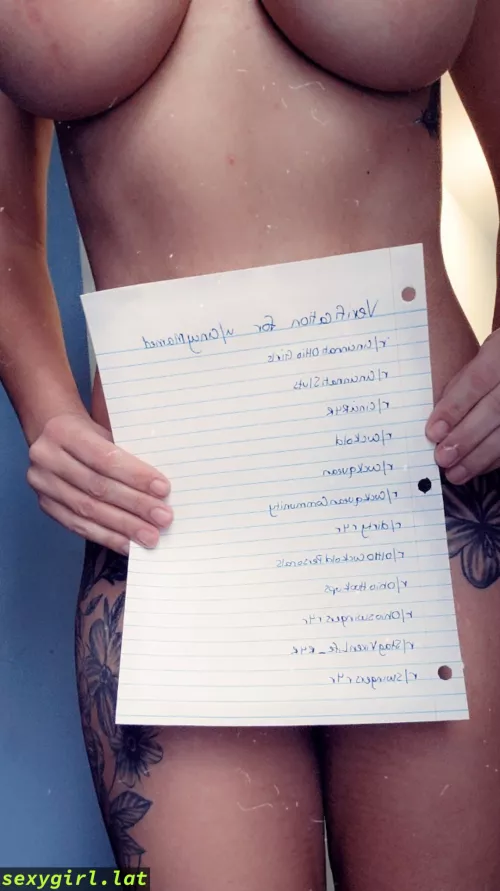 Verification for u/OnyxMarried
r/CincinnatiOHioGirls
r/CincinnatiSluts
r/cincir4r
r/Cuckold
r/Cuckquean
r/CuckqueanCommunity
r/dirtyr4r
r/OHIOCuckoldPersonals
r/OhioHookups
r/Ohioswingersr4r
r/StagVixenLife_R4R
r/swingersr4r
sexygirl.lat